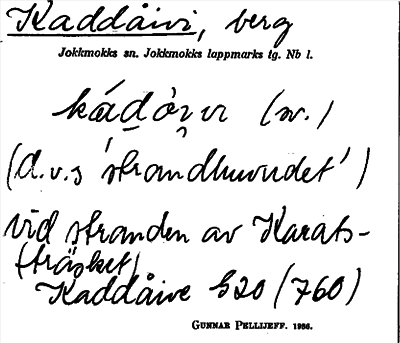 Kaddåivi, berg
Jokkmokks sn. Jokkmokks lappmarks tg. Nb l.
(d.v.s 'strandhuvudet')
vid stranden av Karats-
(träsket)
Kaddåive G20 (760)
GUNNAR PELLIJEFF. 1956.